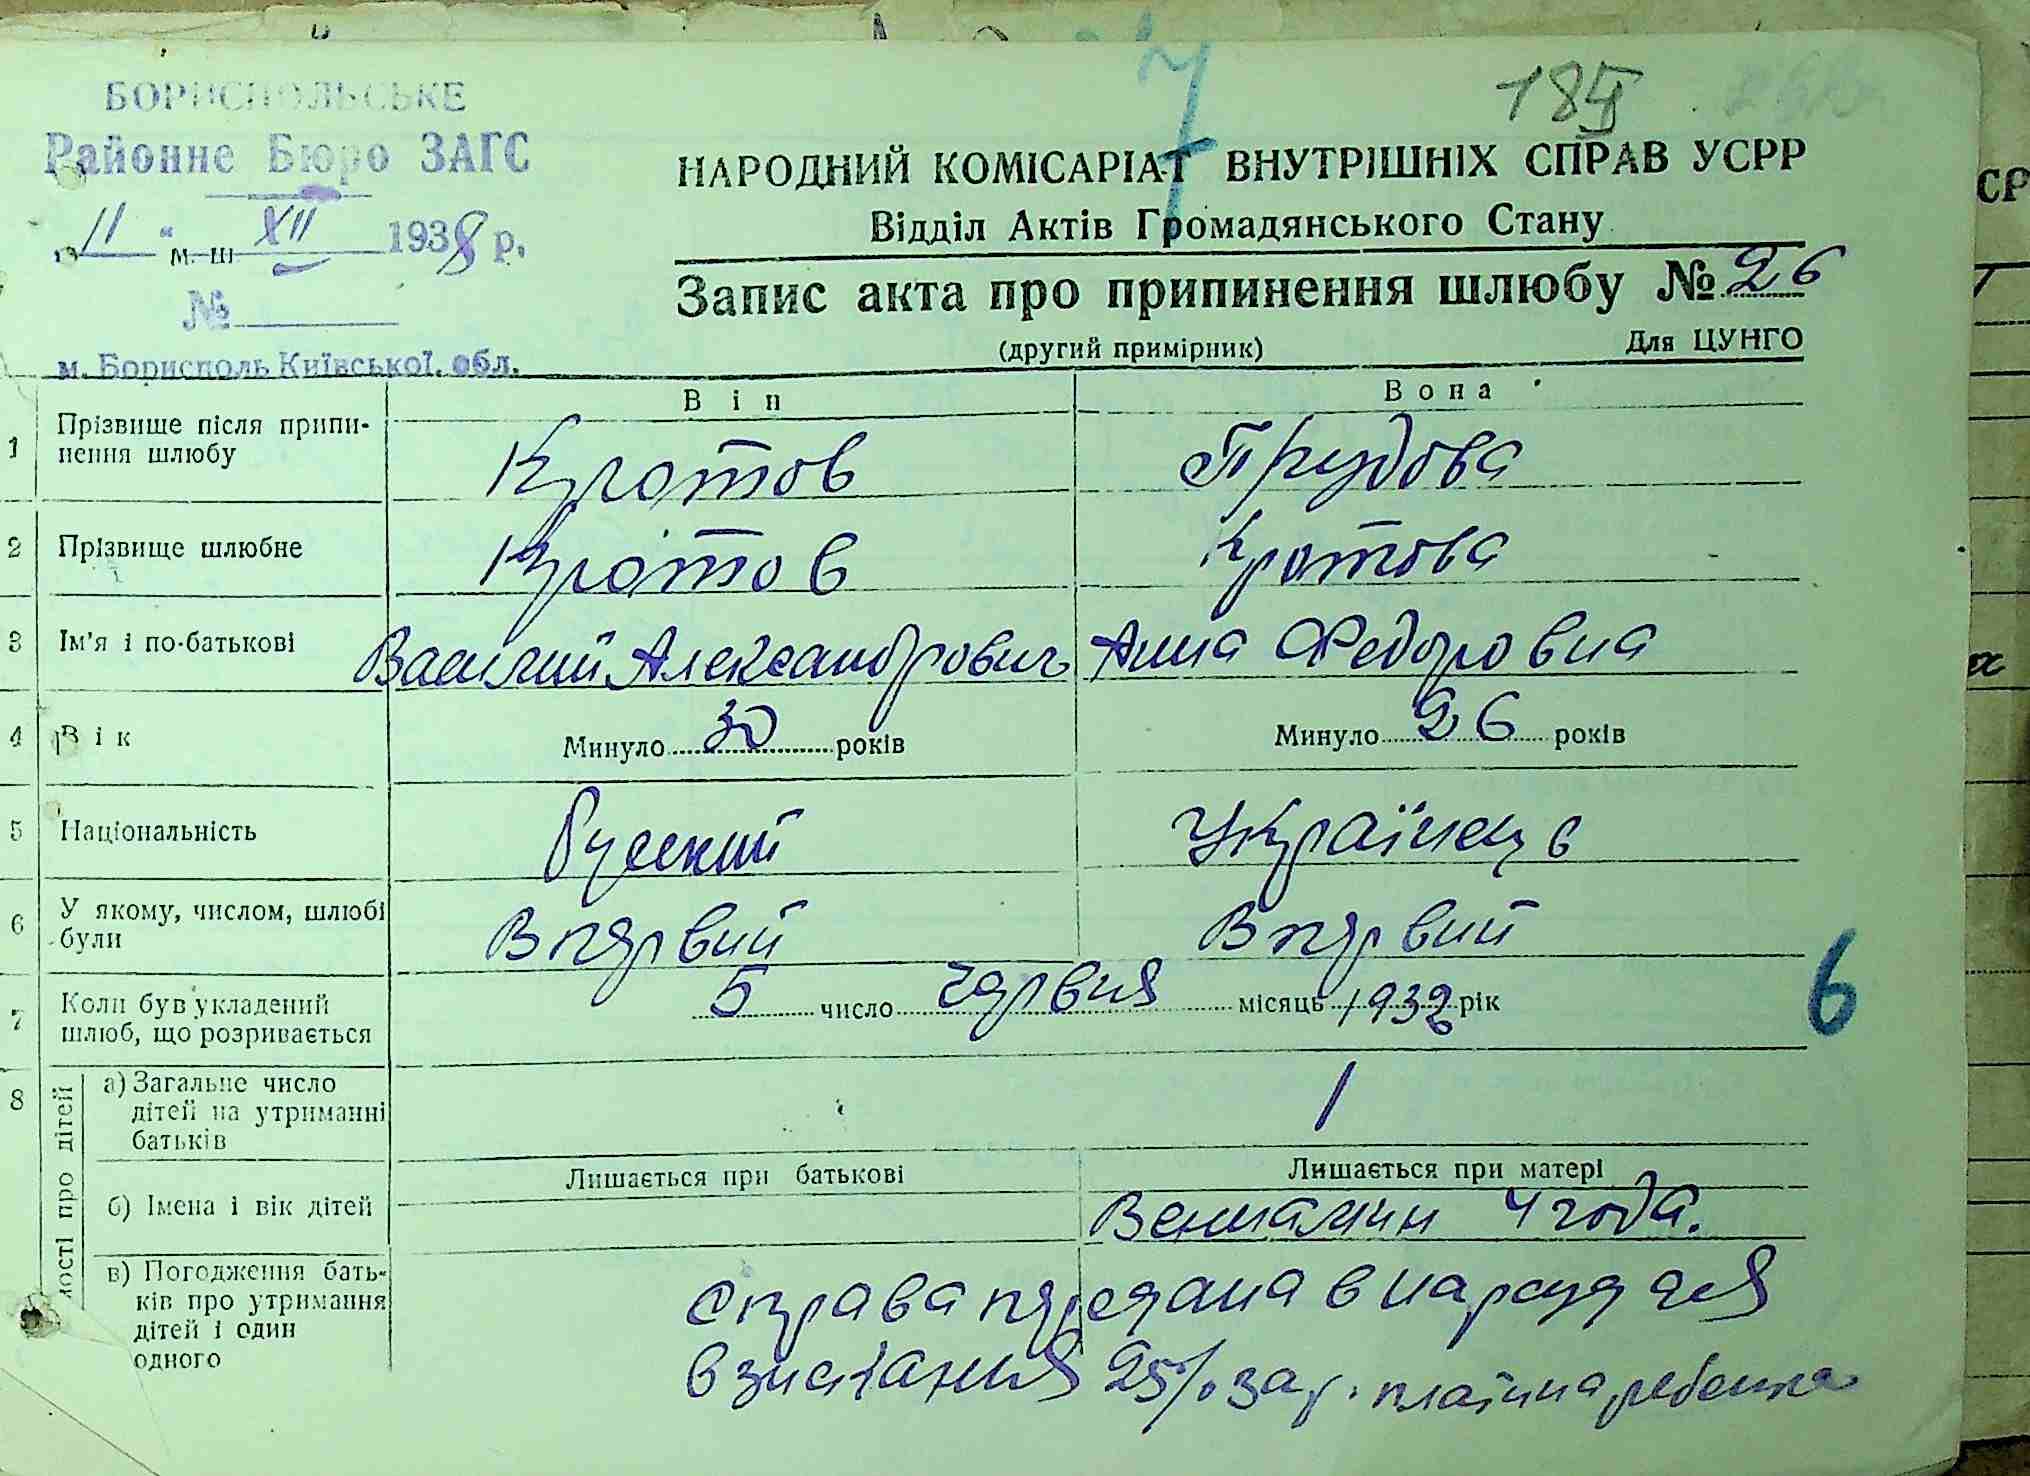 185
7
БОРИСПОЛЬСЬКЕ
Районне Бюро ЗАГС
„11" м-ця XII 1938 р.
№
м. Борисполь Київської обл.
НАРОДНИЙ КОМІСАРІАТ ВНУТРІШНІХ СПРАВ УСРР
Відділ Актів Громадянського Стану
Запис акта про припинення шлюбу № 26
(другий примірник) Для ЦУНГО
Він Вона
1 Прізвище після припи-
нення шлюбу Кротов Прудова
2 Прізвище шлюбне Кротов Кротова
3 Ім'я і по-батькові Василий Александрович Анна Федоровна
4 Вік Минуло 30 років Минуло 26 років
5 Національність Русский Українець
6 У якому, числом, шлюбі
були Впярвий Впярвий
7 Коли був укладений
шлюб, що розривається 5 число чярвня місяць 1932 рік
6
8 ості про дітей
а) Загальне число
дітей на утриманні
батьків 1
Лишається при батькові Лишається при матері
б) Імена і вік дітей Вениамин 4 года.
в) Погодження бать-
ків про утримання
дітей і один
одного
Справа пярядана в нарсуд для
взискания 25% зар. плати на ребенка
СР